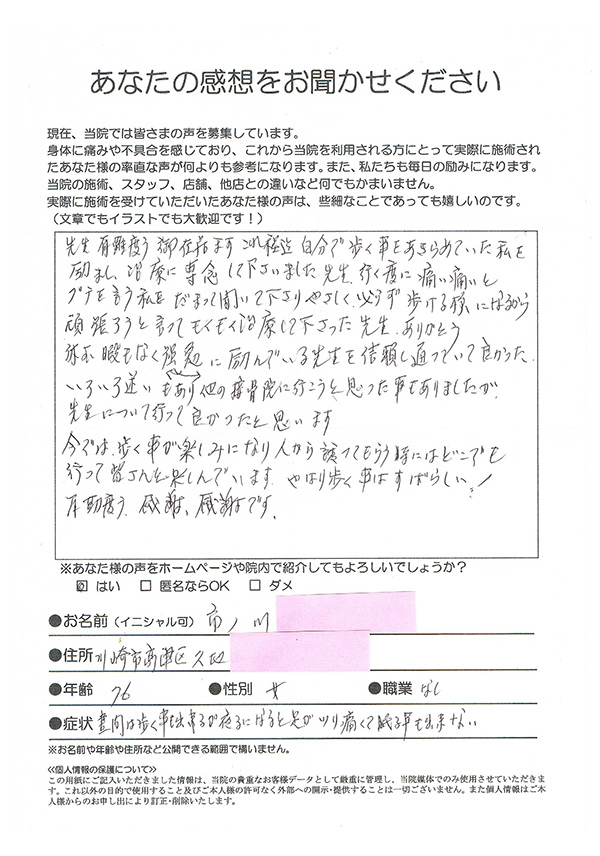 あなたの感想をお聞かせください
現在、当院では皆さまの声を募集しています。
身体に痛みや不具合を感じており、これから当院を利用される方にとって実際に施術され
たあなた様の率直な声が何よりも参考になります。また、私たちも毎日の励みになります。
当院の施術、スタッフ、店舗、他店との違いなど何でもかまいません。
実際に施術を受けていただいたあなた様の声は、些細なことであっても嬉しいのです。
（文章でもイラストでも大歓迎です！）
先生 有難度う御在居ます これ程迄 自分で歩く事をあきらめていた私を
励まし、治療に専念して下さいました先生、行く度に痛い痛いと
グチを言う私をだまって聞いて下さりやさしく、必らず歩ける様になるから
頑張ろうと言ってもくもく治療して下さった先生、ありがとう
暇もなく に励んでいる先生を信頼し通っていて良かった
いろいろ迷いもあり他の接骨院に行こうと思った事もありましたが、
先生について行って良かったと思います
今では、歩く事が楽しみになり人から誘ってもらう時にはどこでも
行って皆さんと楽しんでいます、やはり歩く事はすばらしい！
有難度う、感謝、感謝です。
※あなた様の声をホームページや院内で紹介してもよろしいでしょうか？
☑ はい □ 匿名ならOK □ ダメ
●お名前（イニシャル可） 市ノ川
●住所 川崎市高津区久
●年齢 76 ●性別 女 ●職業 なし
●症状 昼間は歩く事も出来るが夜になると足がツリ痛くて眠る事も出来ない
※お名前や年齢や住所など公開できる範囲で構いません。
≪個人情報の保護について≫
この用紙にご記入いただきました情報は、当院の貴重なお客様データとして厳重に管理し、当院媒体でのみ使用させていただきま
す。これ以外の目的で使用すること及びご本人様の許可なく外部への開示・提供することは一切ございません。また個人情報はご本
人様からのお申し出により訂正・削除いたします。